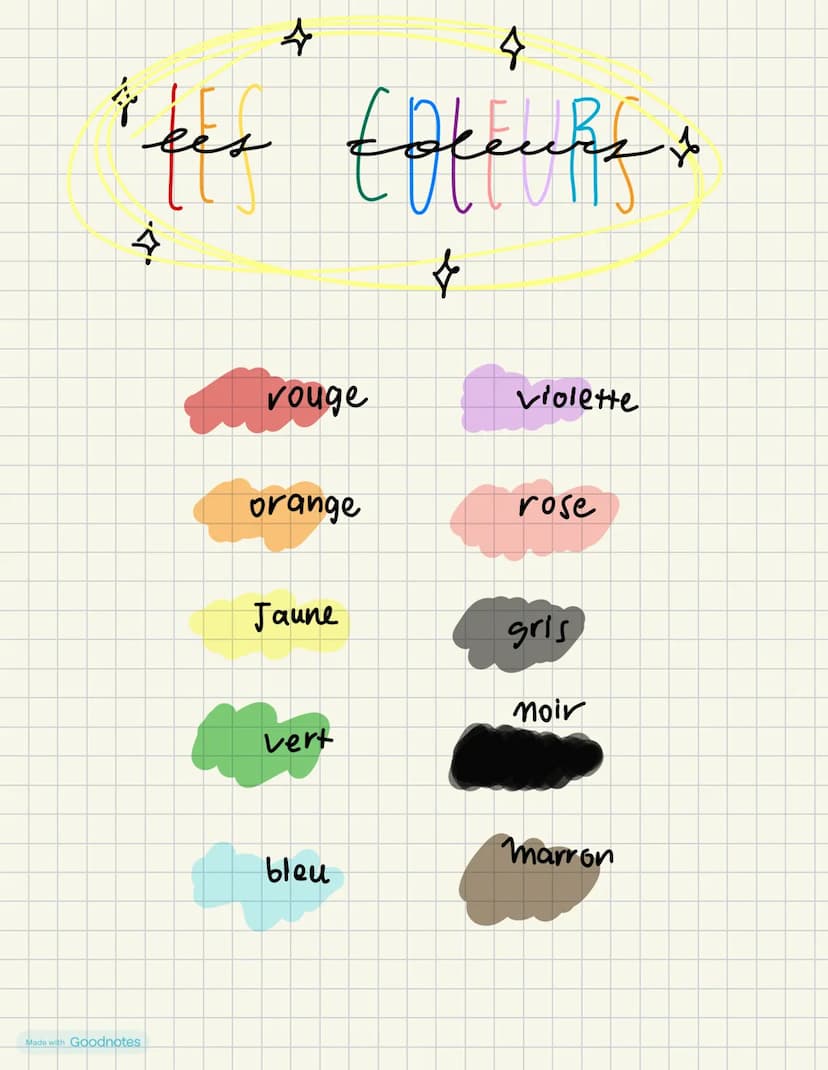 LES COLEURS
les coleurs
rouge
orange
Jaune
vert
bleu
violette
rose
gris
noir
marron
Made with Goodnotes